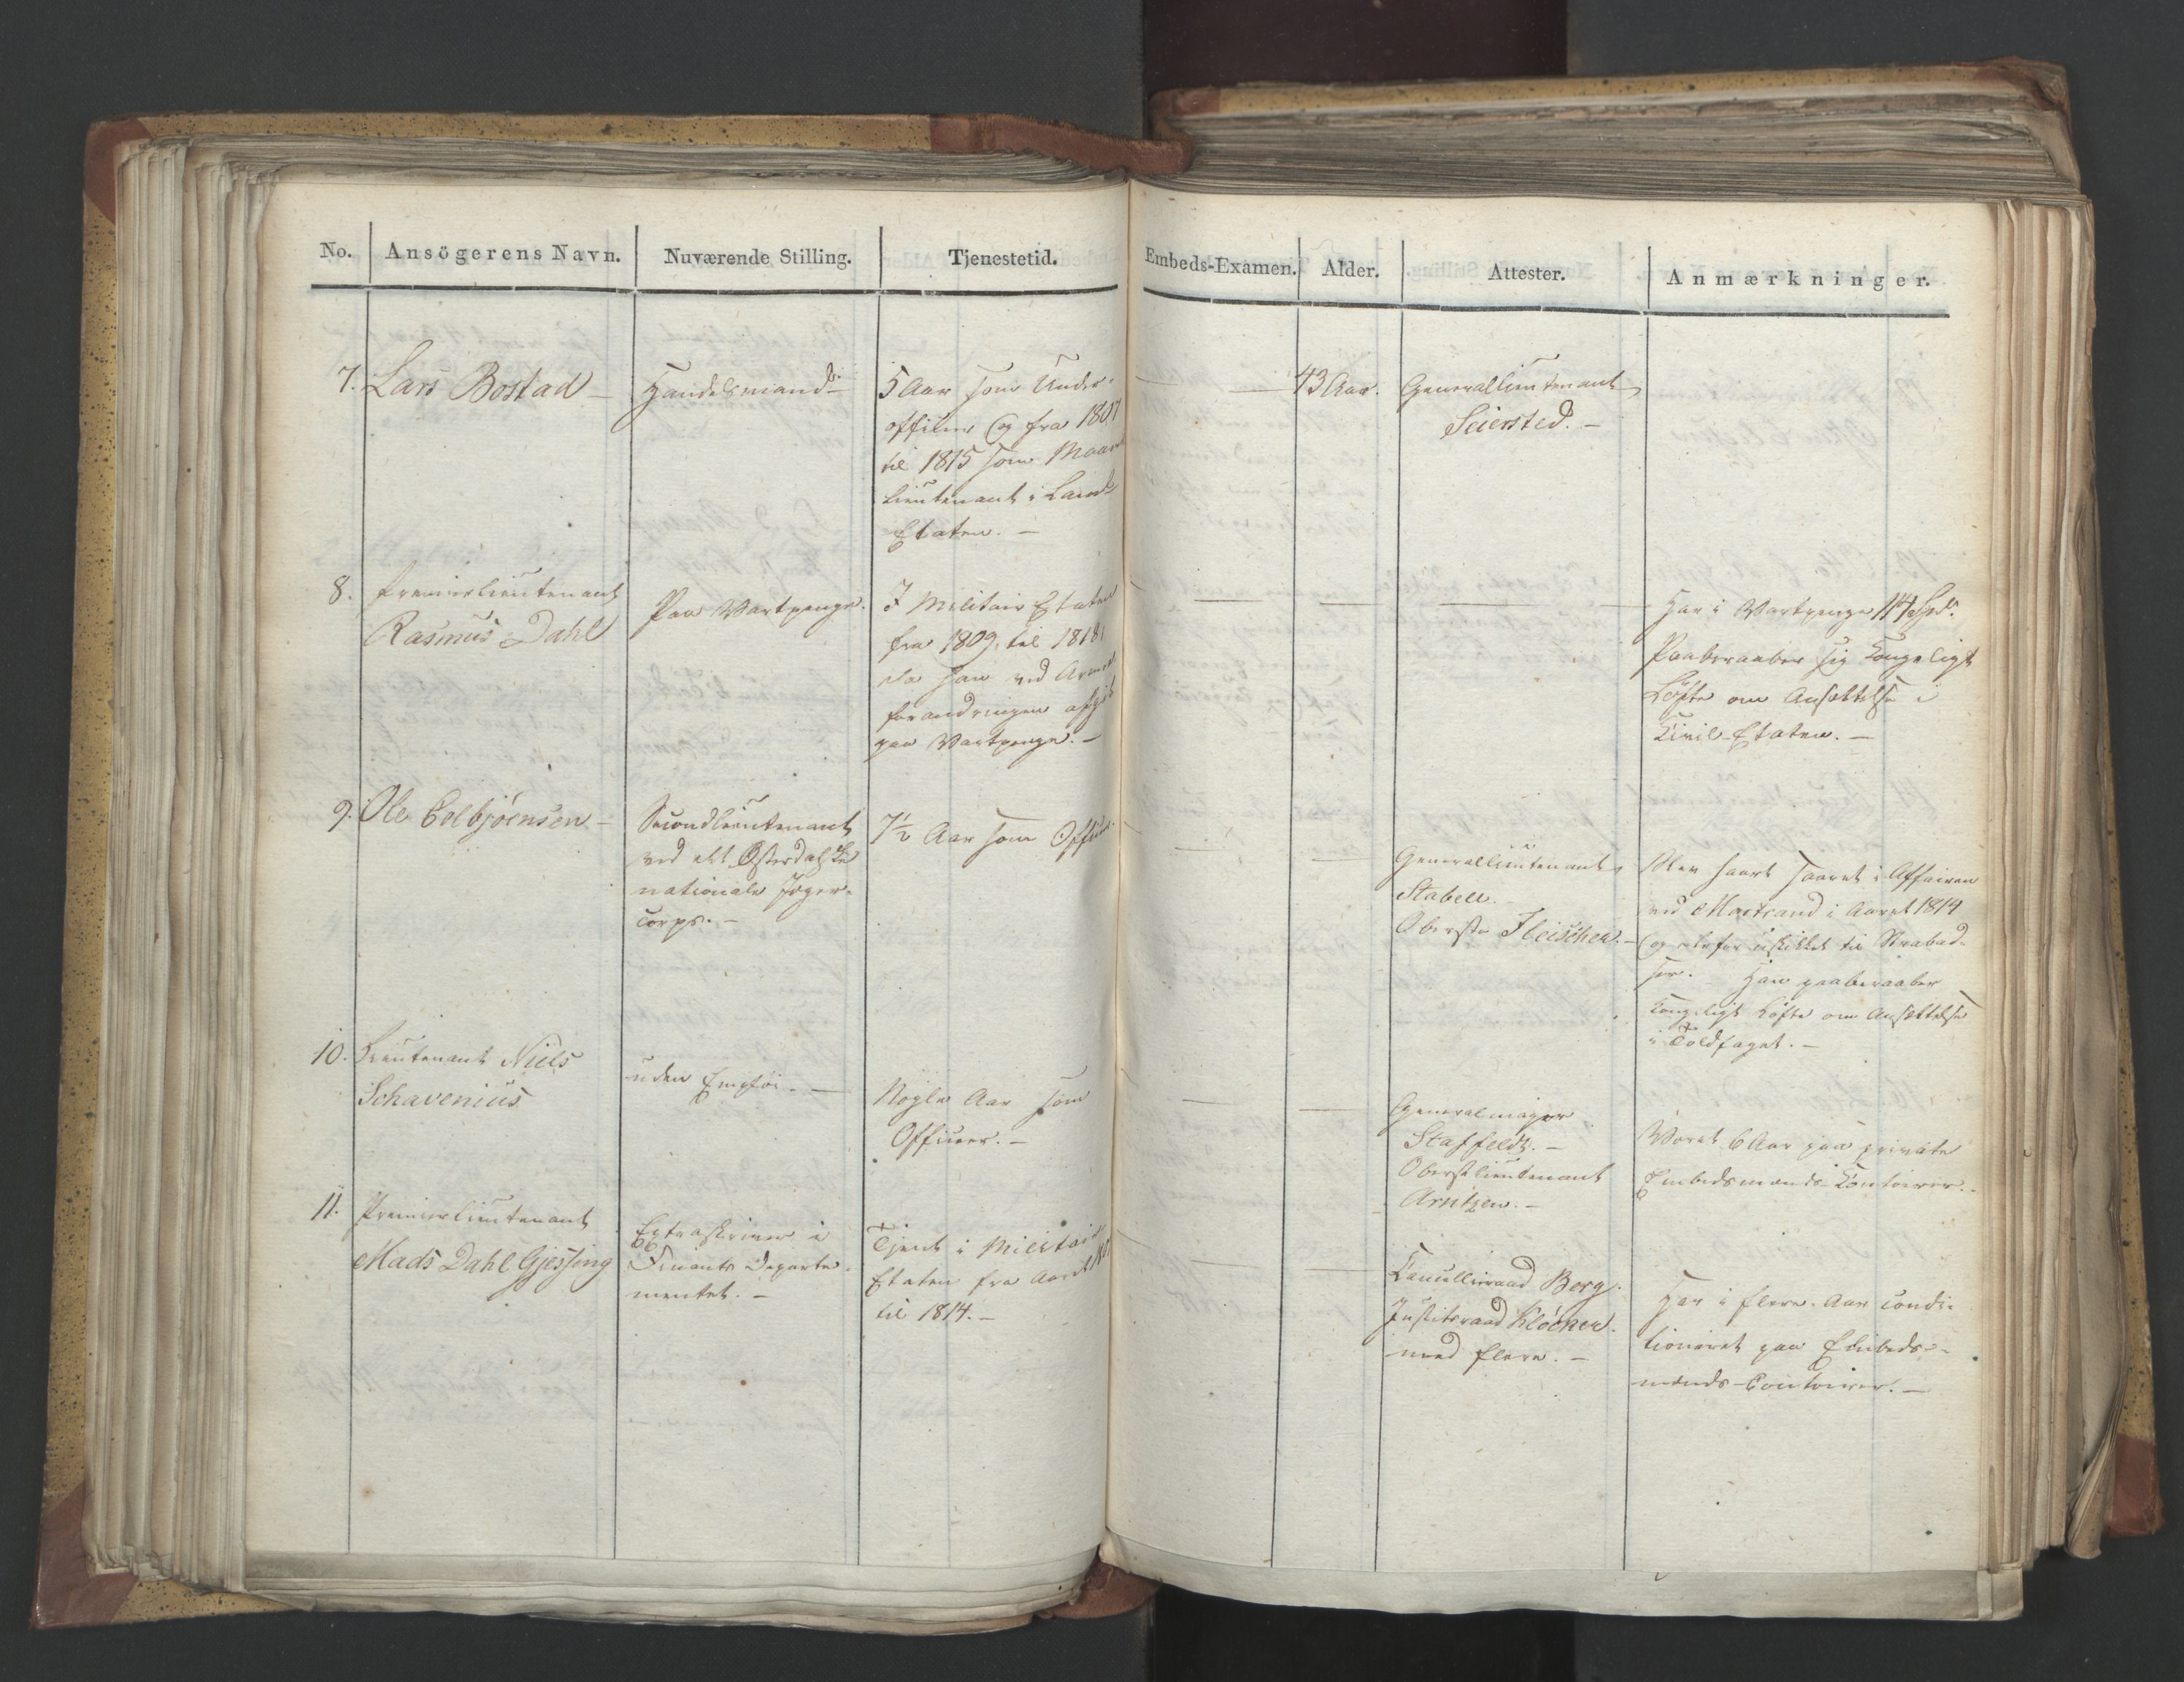 No. Ansögerens Navn. Nuværende Stilling. Tjenestetid. Embeds-Examen. Alder. Attester. Anmærkninger.
7. Lars Bostad —
Handelsmand. —
5 Aar som Under-
officeer og fra 1807
til 1815 som
Lieutenant i Land-
Etaten. —
— 43 Aar.
Generallieutenant
Seiersted. —
8. Premierlieutenant
Rasmus Dahl
Paa Vartpenge.
I Militair Etaten
fra 1809 til 1818,
da han ved Armee
forandringen afgik
paa Vartpenge. —
— — —
Har i Vartpenge 114 Spd.
Paaberaaber sig Kongeligt
Løfte om Ansættelse i
Civil-Etaten. —
9. Ole Colbjørnsen —
Secondlieutenant
ved det Østerdalske
nationale Jæger-
corps. —
7½ Aar som Officeer.
— —
Generallieutenant
Stabell. —
Oberste Fleischer. —
Blev haart saaret i Affairen
ved Mastrand i Aaret 1814
og derfor uskikket til Strabad-
ser. Han paaberaaber
Kongeligt Løfte om Ansættelse
i Toldfaget. —
10. Lieutenant Niels
Schavenius
uden Emploi. —
Nogle Aar som
Officeer. —
— —
Generalmajor
Staffeldt. —
Oberstlieutenant
Arntzen. —
Været 6 Aar paa private
Embedsmænds-Contoirer. —
11. Premierlieutenant
Mads Dahl Gjessing
Extraskriver i
Finants Departe-
mentet. —
Tjent i Militair
Etaten fra Aaret
til 1814. —
— —
Cancelliraad Berg.
Justitsraad Kløcker.
med flere. —
Har i flere Aar condi-
tioneret paa Embeds-
mænds-Contoirer. —